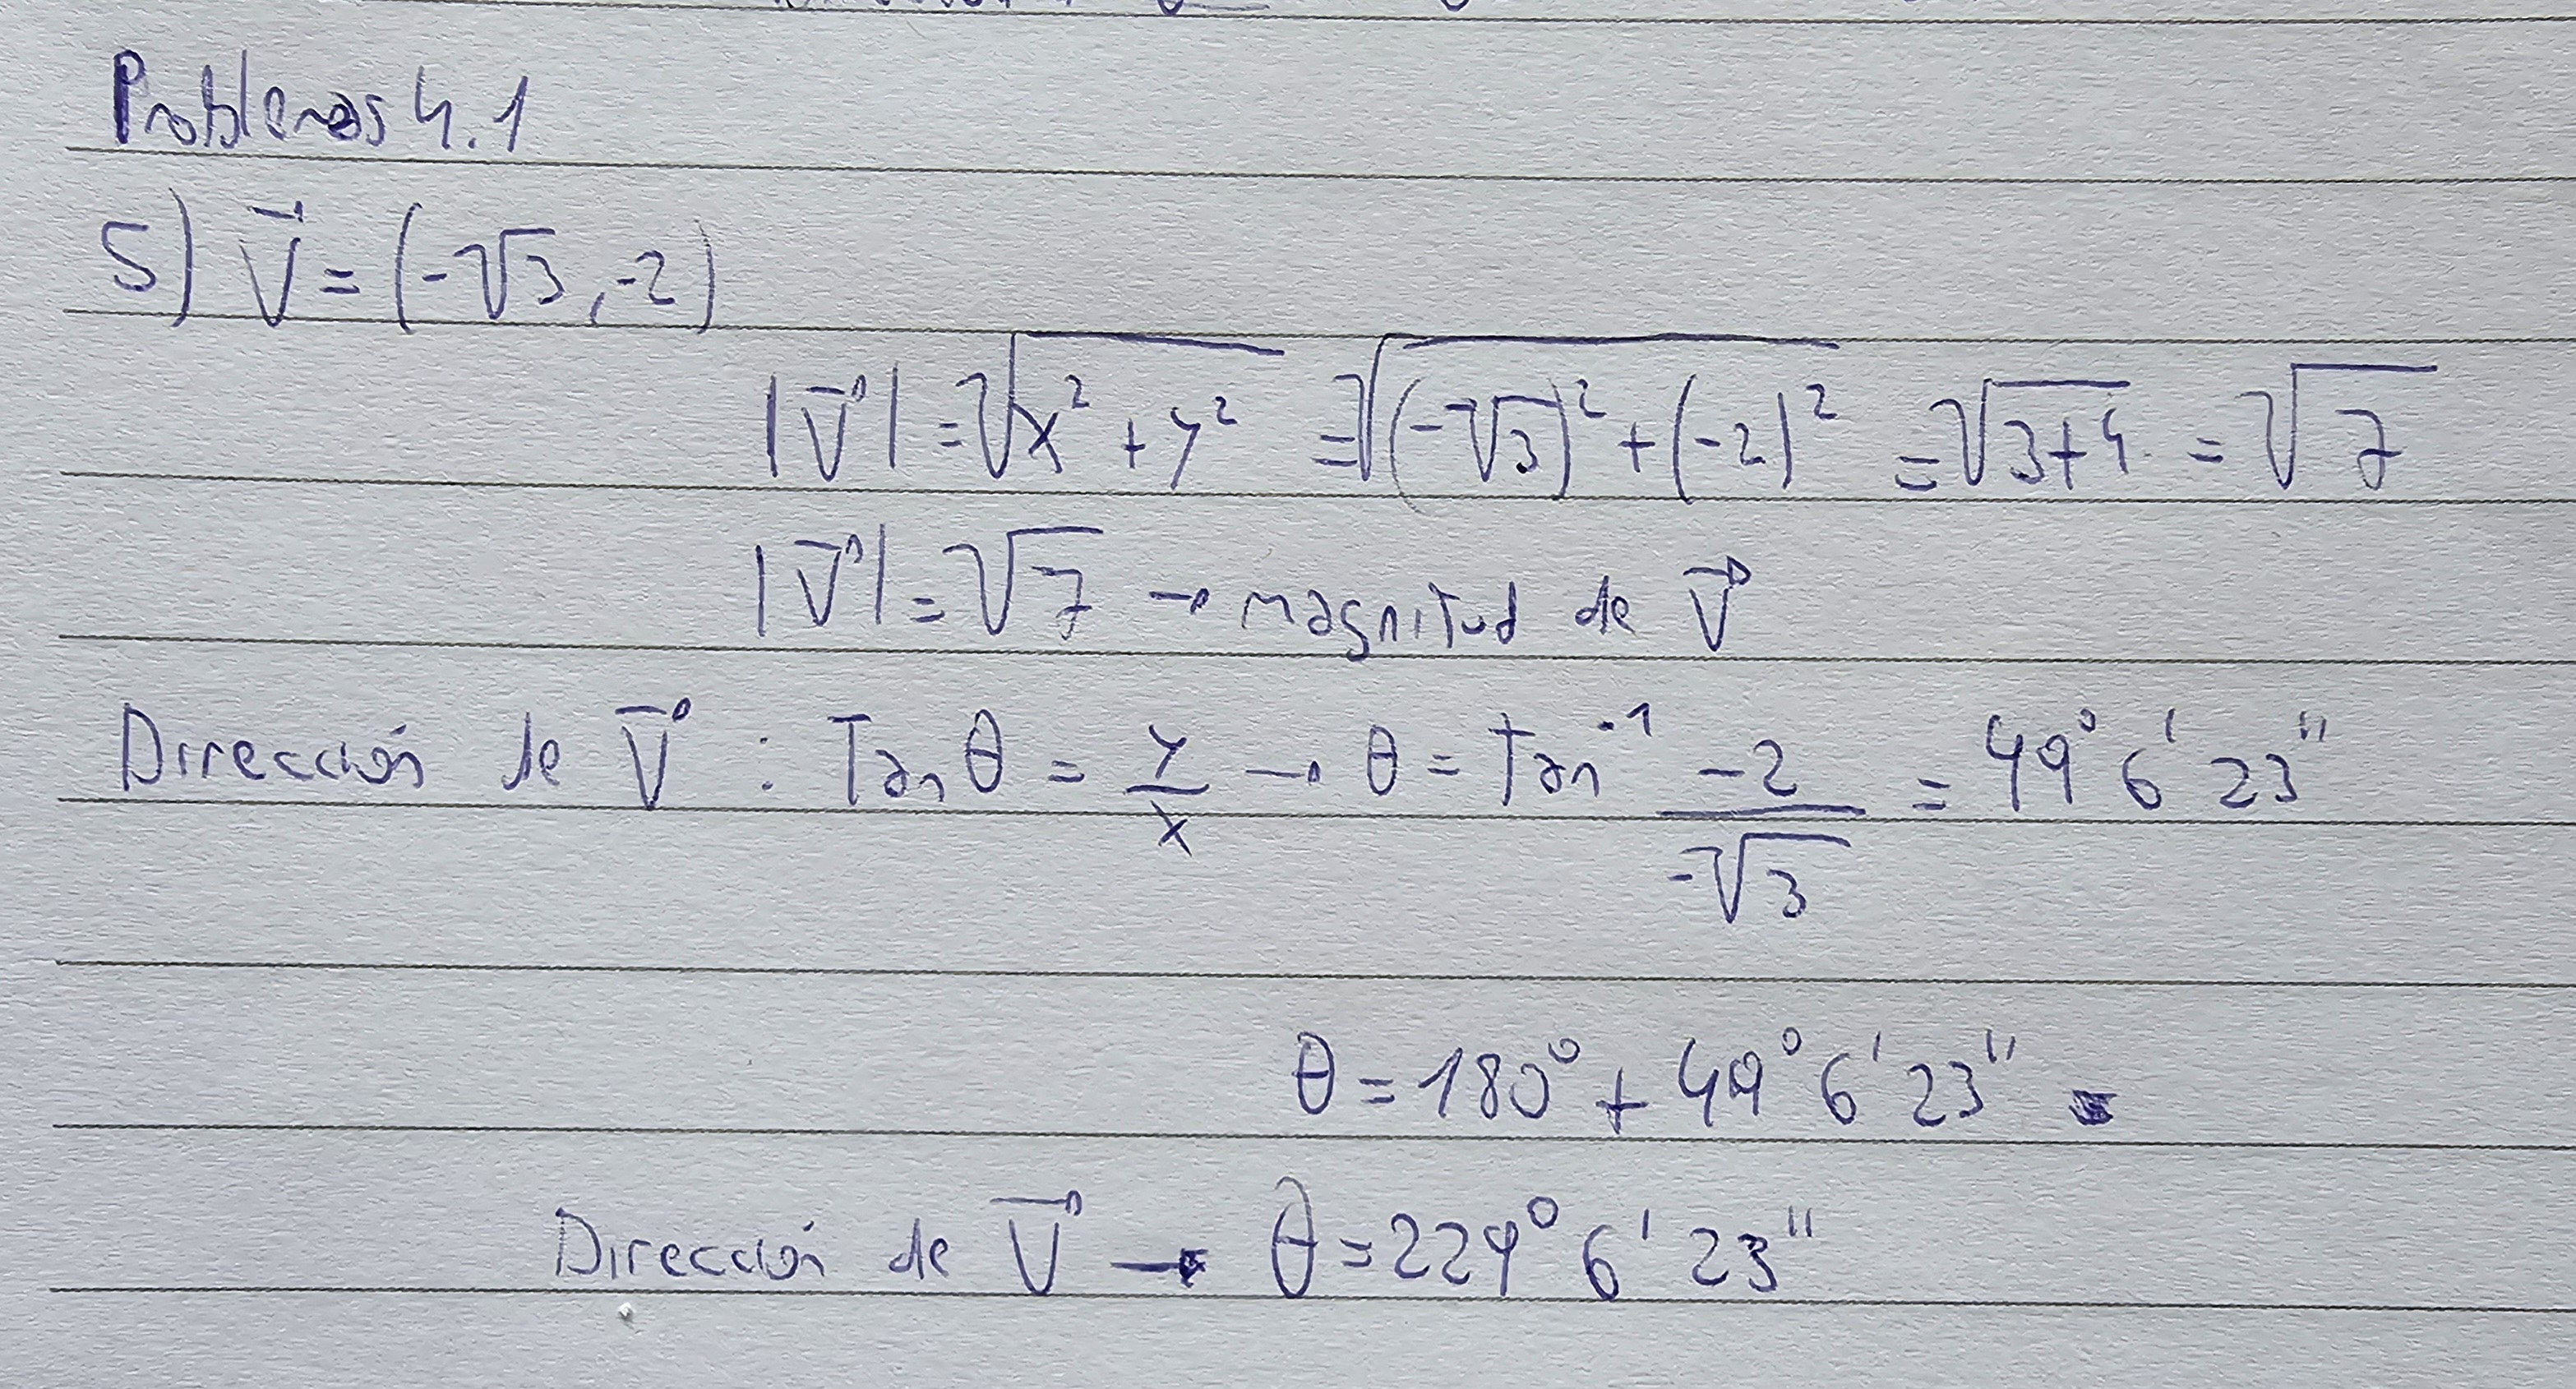 Problemas 4.1
5) V⃗ = (-√3, -2)
|V⃗| = √(x² + y²) = √((-√3)² + (-2)²) = √(3+4) = √7
|V⃗| = √7 → magnitud de V⃗
Dirección de V⃗ : Tan θ = y/x → θ = Tan⁻¹ -2/-√3 = 49° 6' 23"
θ = 180° + 49° 6' 23" =
Dirección de V⃗ → θ = 229° 6' 23"